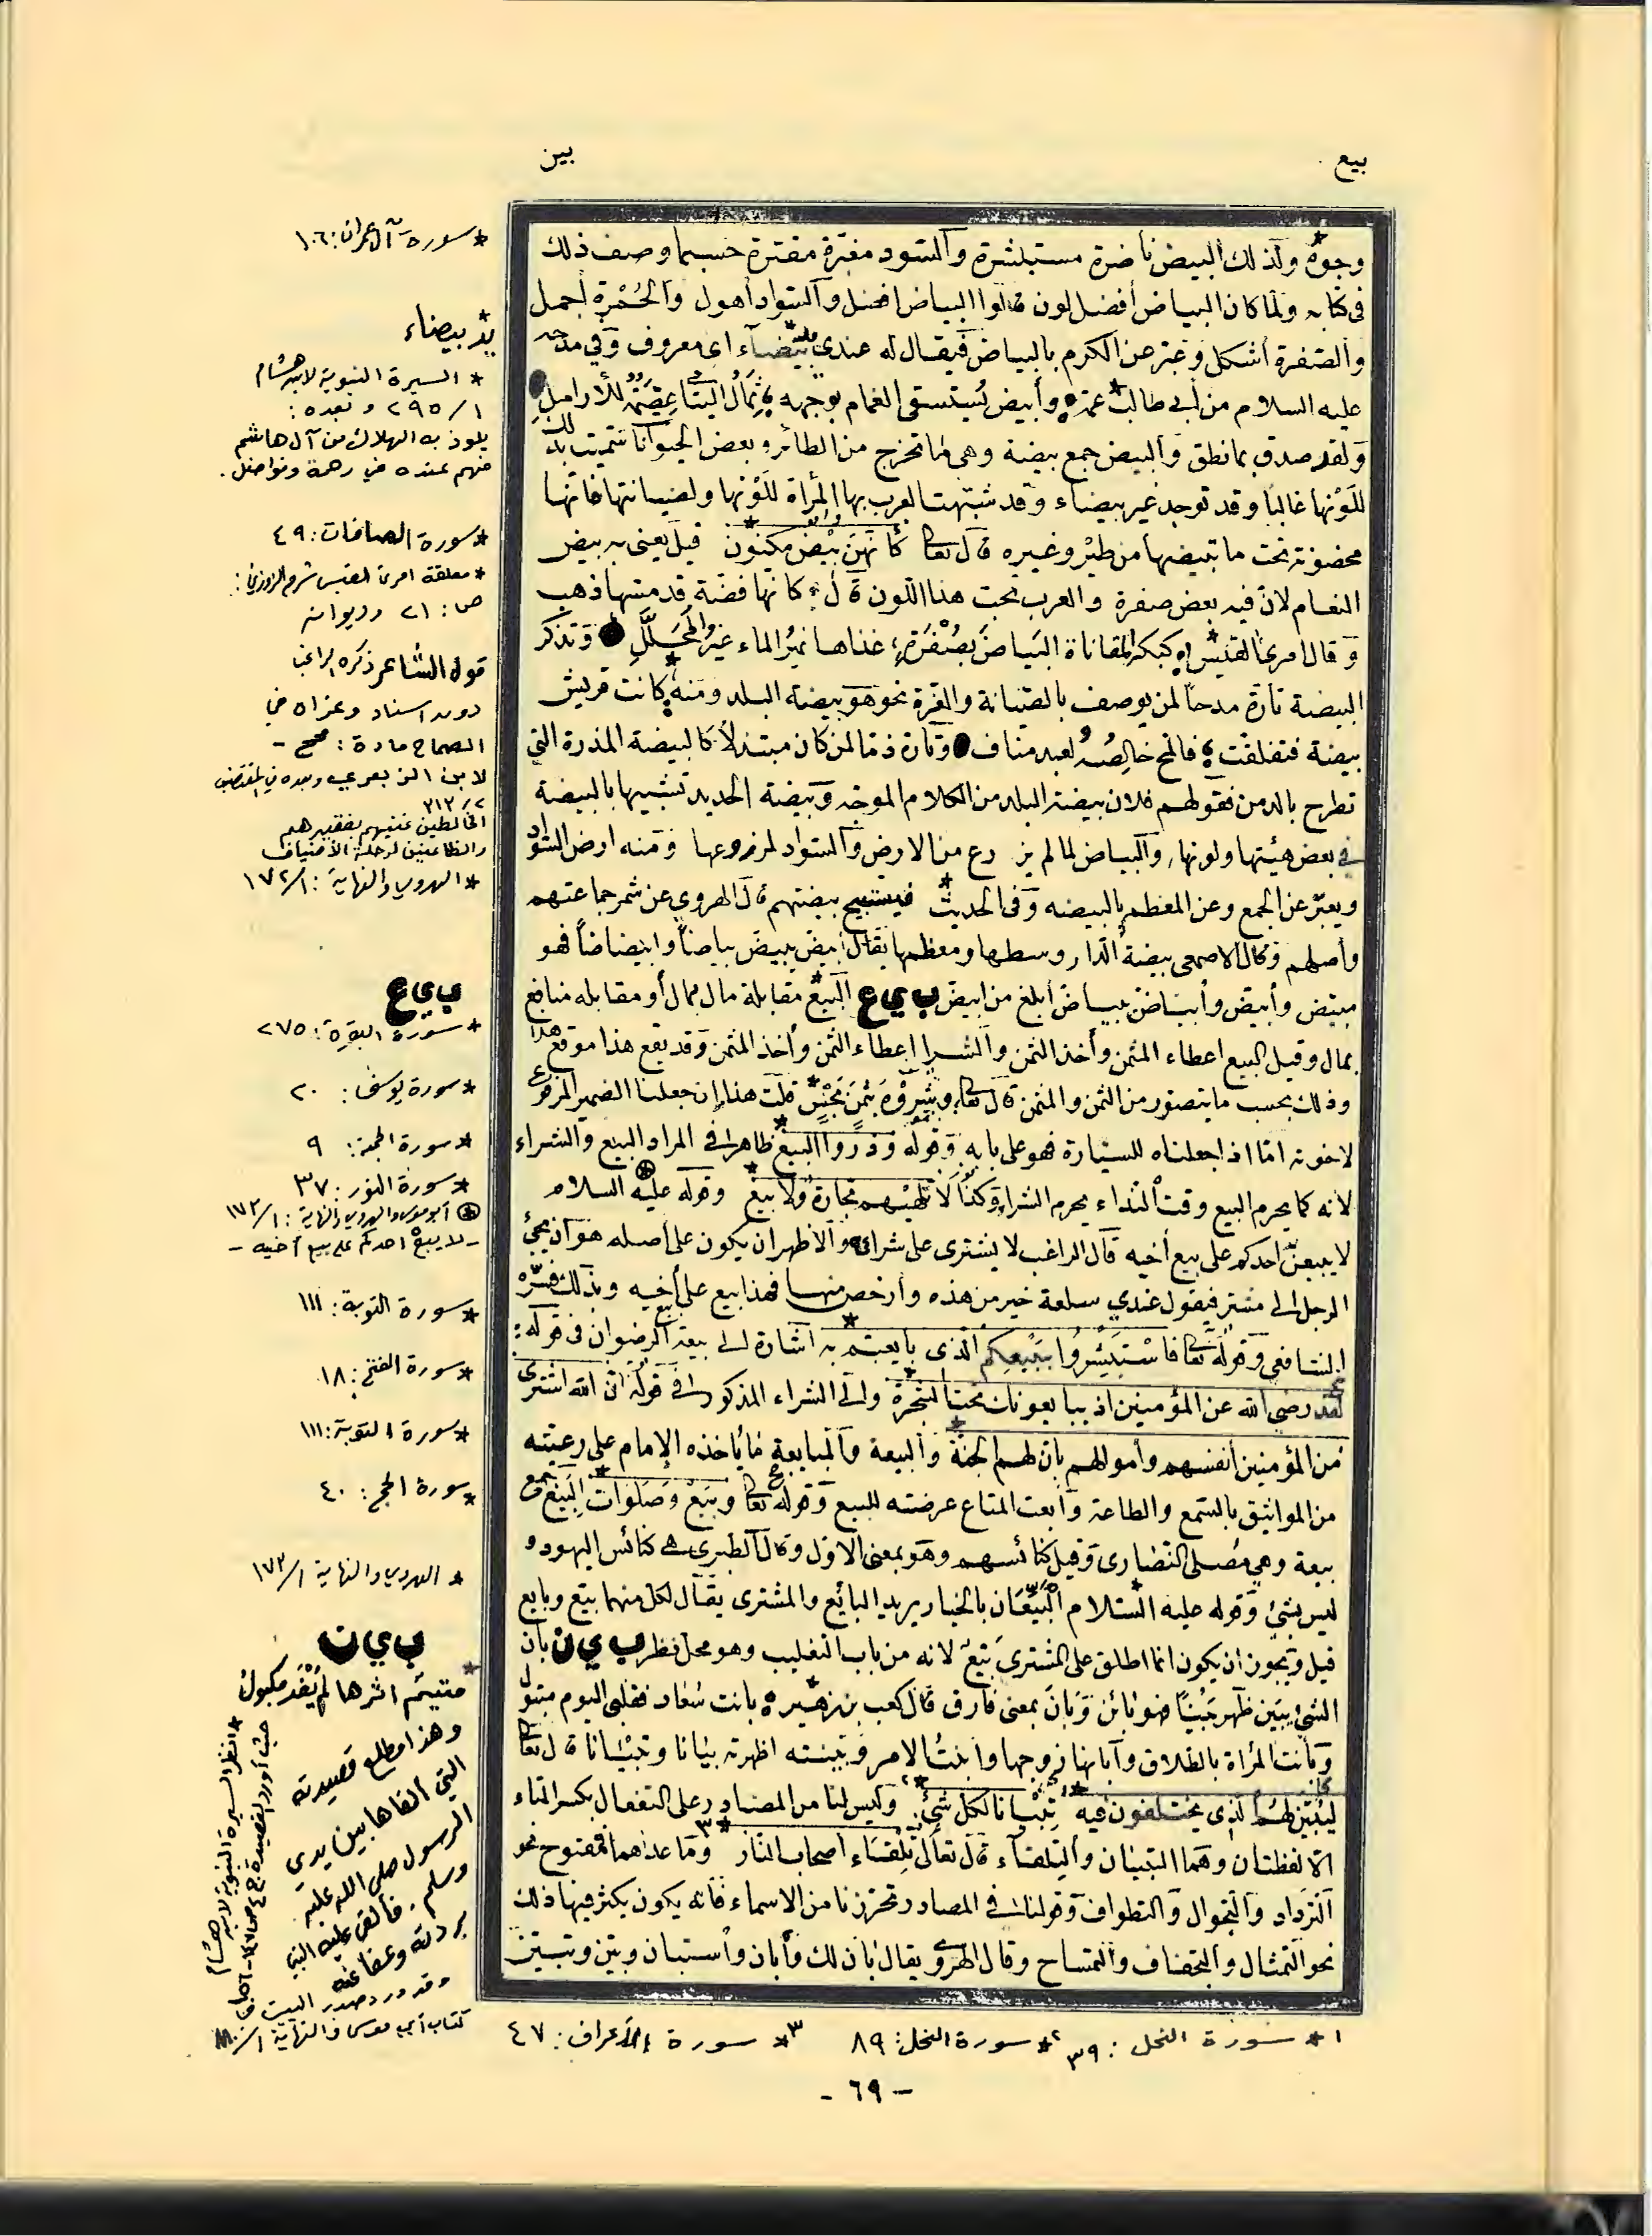 بيع
بين
وجوه ولذلك البيض ناضرة مستبشرة والسود مغبرة مقترة حسبما وصف ذلك
في كتابه ولما كان البياض أفضل لون قالوا البياض افضل والسواد أهول والحُمْرة أجمل
والصفرة أشكل وعبر عن الكرم بالبياض فيقال له عندي يد بيضاء اى معروف وفي مدحه
عليه السلام من أبي طالب عمه وأبيض يُستسقى الغمام بوجهه ثِمَالُ اليتامى عِصْمَةٌ للأرامل
ولقد صدق بما نطق والبيض جمع بيضة وهي ما تخرج من الطائر وبعض الحيوانات سميت بذلك
للَوْنها غالبا وقد توجد غير بيضاء وقد شبهت العرب بها المرأة للَوْنها ولصيانتها فانها
محضونة تحت ما تبيضها من طير وغيره قال تعالى كأنهن بيض مكنون قيل يعنى به بيض
النعام لان فيه بعض صفرة والعرب تحب هذا اللون قال كأنها فضة قد مسها ذهب
وقال امرئ القيس كبكر المقاناة البَياضَ بِصُفْرَةٍ غذاها نميرُ الماء غيرُ المُحَلَّلِ وتذكر
البيضة تارة مدحاً لمن يوصف بالصيانة والعزة نحو هو بيضة البلد ومنه كانت قريش
بيضة فتفلقت فالمح خالِصُه لعبد مناف وتارة ذما لمن كان مبتذلاً كالبيضة المذرة التي
تطرح بالدمن فقولهم فلان بيضة البلد من الكلام الموجه وبيضة الحديد تشبيها بالبيضة
في بعض هيئتها ولونها والبياض لما لم يزرع من الارض والسواد لمزروعها ومنه ارض السواد
ويعبّر عن الجمع وعن المعظم بالبيضه وفي الحديث فيستبيح بيضتهم قال الهروي عن شمر جماعتهم
وأصلهم وقال الاصمعي بيضة الدار وسطها ومعظمها يقال ابيض يبيض بياضاً وابيضاضاً فهو
مبيض وأبيض وأبياض يبياض أبلغ من ابيض ب ي ع البيع مقابلة مال بمال أو مقابله منافع
بمال وقيل البيع اعطاء المثمن وأخذ الثمن والشرا إعطاء الثمن وأخذ المثمن وقد يقع هذا موقع هذا
وذلك بحسب ما يتصور من الثمن والمثمن قال تعالى وشَرَوْهُ بثَمَنٍ بَخْسٍ قلت هذا إن جعلنا الضمير المرفوع
لاخوته امّا اذا جعلناه للسيارة فهو على بابه وقوله وذروا البيع ظاهر في المراد البيع والشراء
لانه كما يحرم البيع وقت النداء يحرم الشراء وكذا لا تلهيهم تجارة ولا بيع وقوله عليه السلام
لا يبيعنّ احدكم على بيع أخيه قال الراغب لا يشترى على شرائه والاظهر ان يكون على أصله هو أن يجئ
الرجل الى مشتر فيقول عندي سلعة خير من هذه وأرخص منها فهذا بيع على بيع أخيه وبذلك فسره
الشافعي وقوله تعالى فاسْتَبْشِرُوا ببَيْعِكم الذى بايعتم به اشارة الى بيعة الرضوان في قوله:
لقد رضي الله عن المؤمنين اذ يبايعونك تحت الشجرة والى الشراء المذكور في قوله ان الله اشترى
من المؤمنين أنفسهم وأموالهم بأن لهم الجنة والبيعة والمبايعة ما يأخذه الإمام على رعيته
من المواثيق بالسمع والطاعة وأبعت المتاع عرضته للبيع وقوله تعالى وبِيَعٌ وصَلَوَاتٌ البِيَع جمع
بيعة وهي مصلى النصارى وقيل كنائسهم وهو بمعنى الاوّل وقال الطبري هى كنائس اليهود و
ليس بشئ وقوله عليه السلام البَيِّعَان بالخيار يريد البائع والمشترى يقال لكل منهما بيّع وبايع
قيل ويجوز ان يكون انما اطلق على المشترى بَيّع لانه من باب التغليب وهو محل نظر ب ي ن بان
الشئ يَبين ظهر بَيْنًا فهو بائن وَبَانَ بمعنى فارق قال كعب بن زهير بانت سُعاد فقلبى اليوم متبول
وبانت المرأة بالطلاق وأبانها زوجها وأبنتُ الامر وبينته اظهرته بيانا وتبيانا قال تعالى
ليُبَيّن لهم الذي يختلفون فيه تِبْيانا لكل شئ وليس لنا من المصادر على التفعال بكسر التاء
الا لفظتان وهما التبيان والتلقاء قال تعالى تِلْقَاء أصحاب النار وما عداهما فمفتوح نحو
الترداد والتجوال والتطواف وقولنا في المصادر تحرزنا من الاسماء فانه يكون يكثر فيها ذلك
نحو التمثال والتجفاف والتمساح وقال الهروي يقال بان لك وأبان وأستبان وبيّن وتبيّن
* سورة آل عمران: ١٠٦
يدٌ بيضاء
* السيرة النبوية لابن هشام
١/ ٢٩٥ وبعده:
يلوذ به الهلاك من آل هاشم
فهم عنده في رحمة وفواضل.
* سورة الصافات: ٤٩
* معلقة امرئ القيس شرح الزوزني:
ص: ٢١ وديوانه
قول الشاعر ذكره الراغب
دون اسناد وعزاه في
الصحاح مادة: محح -
لابن الزبعري وبعده في المقتضب
٢/ ٣١٢
الخالطين غنيهم بفقيرهم
والظاعنين لرحلة الأضياف
* الهروي والنهاية: ١/ ١٧٢
ب ي ع
* سورة البقرة: ٢٧٥
* سورة يوسف: ٢٠
* سورة الجمعة: ٩
* سورة النور: ٣٧
أبو موسى والهروي والنهاية: ١/ ١٧٣
- لا يبيع احدكم على بيع أخيه -
* سورة التوبة: ١١١
* سورة الفتح: ١٨
* سورة التوبة: ١١١
* سورة الحج: ٤٠
* الهروي والنهاية ١/ ١٧٣
ب ي ن
* متيم اثرها لم يُفْدَ مكبول
وهذا مطلع قصيدته
التي القاها بين يدي
الرسول صلى الله عليه
وسلم. فألقى عليه النبي
بردته وعفا عنه
وقد ورد صدر البيت في
كتاب أبي موسى والنهاية ١/
* انظر السيرة النبوية لابن هشام
حيث أورد القصيدة ج ٤
١* سورة النحل: ٣٩
٢* سورة النحل: ٨٩
٣* سورة الأعراف: ٤٧
- ٦٩ -